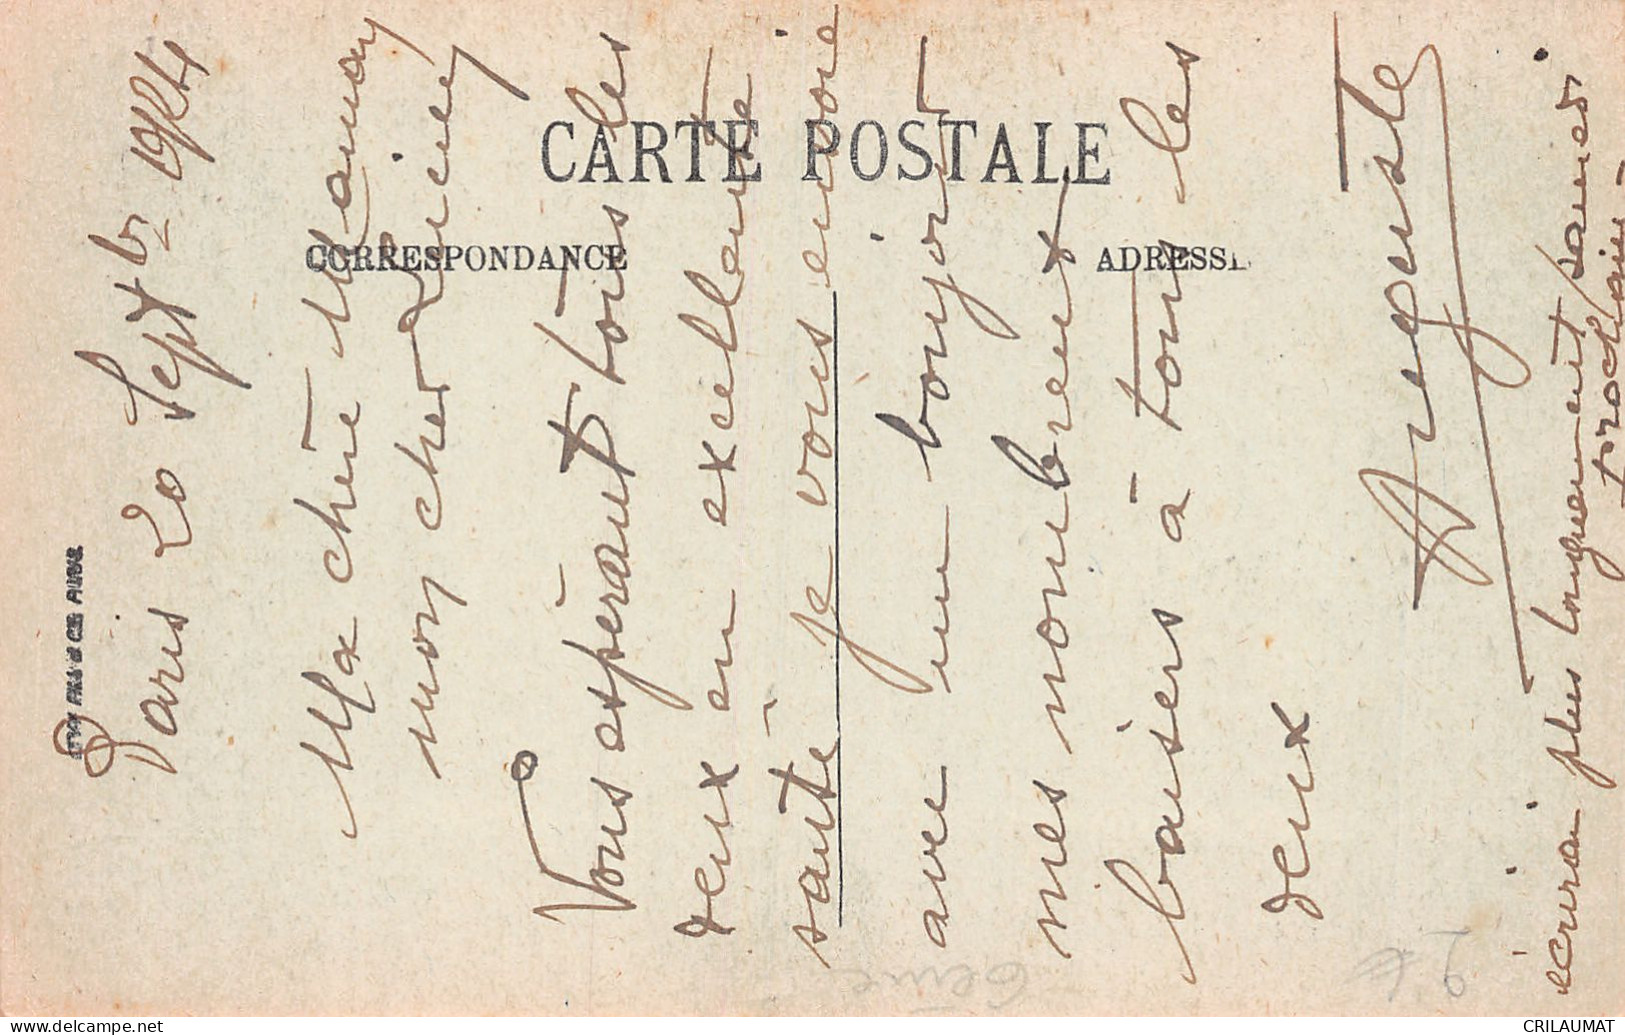 CARTE POSTALE
CORRESPONDANCE
ADRESSE
Paris 20 Septbr 1924
Ma chère Maman
mon cher Lucien
Vous espérant tous les
deux en excellente
santé je vous envoie
avec un bonjour
mes nombreux
baisers à tous les
deux
Auguste
écrirai plus longuement samedi
prochain
6ème
CRILAUMAT